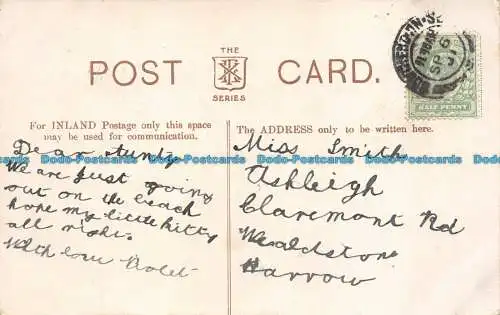 THE
POST CARD.
SERIES
HALF PENNY
For INLAND Postage only this space
may be used for communication.
The ADDRESS only to be written here.
Dear Aunty
We are just going
out on the beach
hope my little kitty
all right.
With love Violet
Miss Smith
Ashleigh
Claremont Rd
Wealdstone
Harrow
Dodo-Postcards Dodo-Postcards Dodo-Postcards Dodo-Postcards Dodo-Postcards Dodo-Postcards